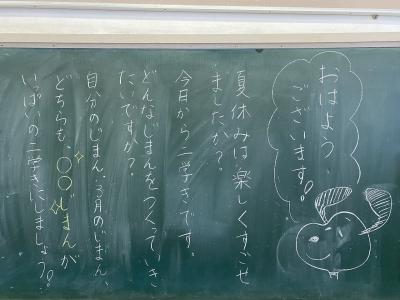 おはよう、
ございます!
夏休みは楽しくすごせ
ましたか?
今日から二学きです。
どんなじまんをつくっていき
たいですか?
自分のじまん、3月のじまん、
どちらも、〇〇じまんが
いっぱいの二学きにしましょう!